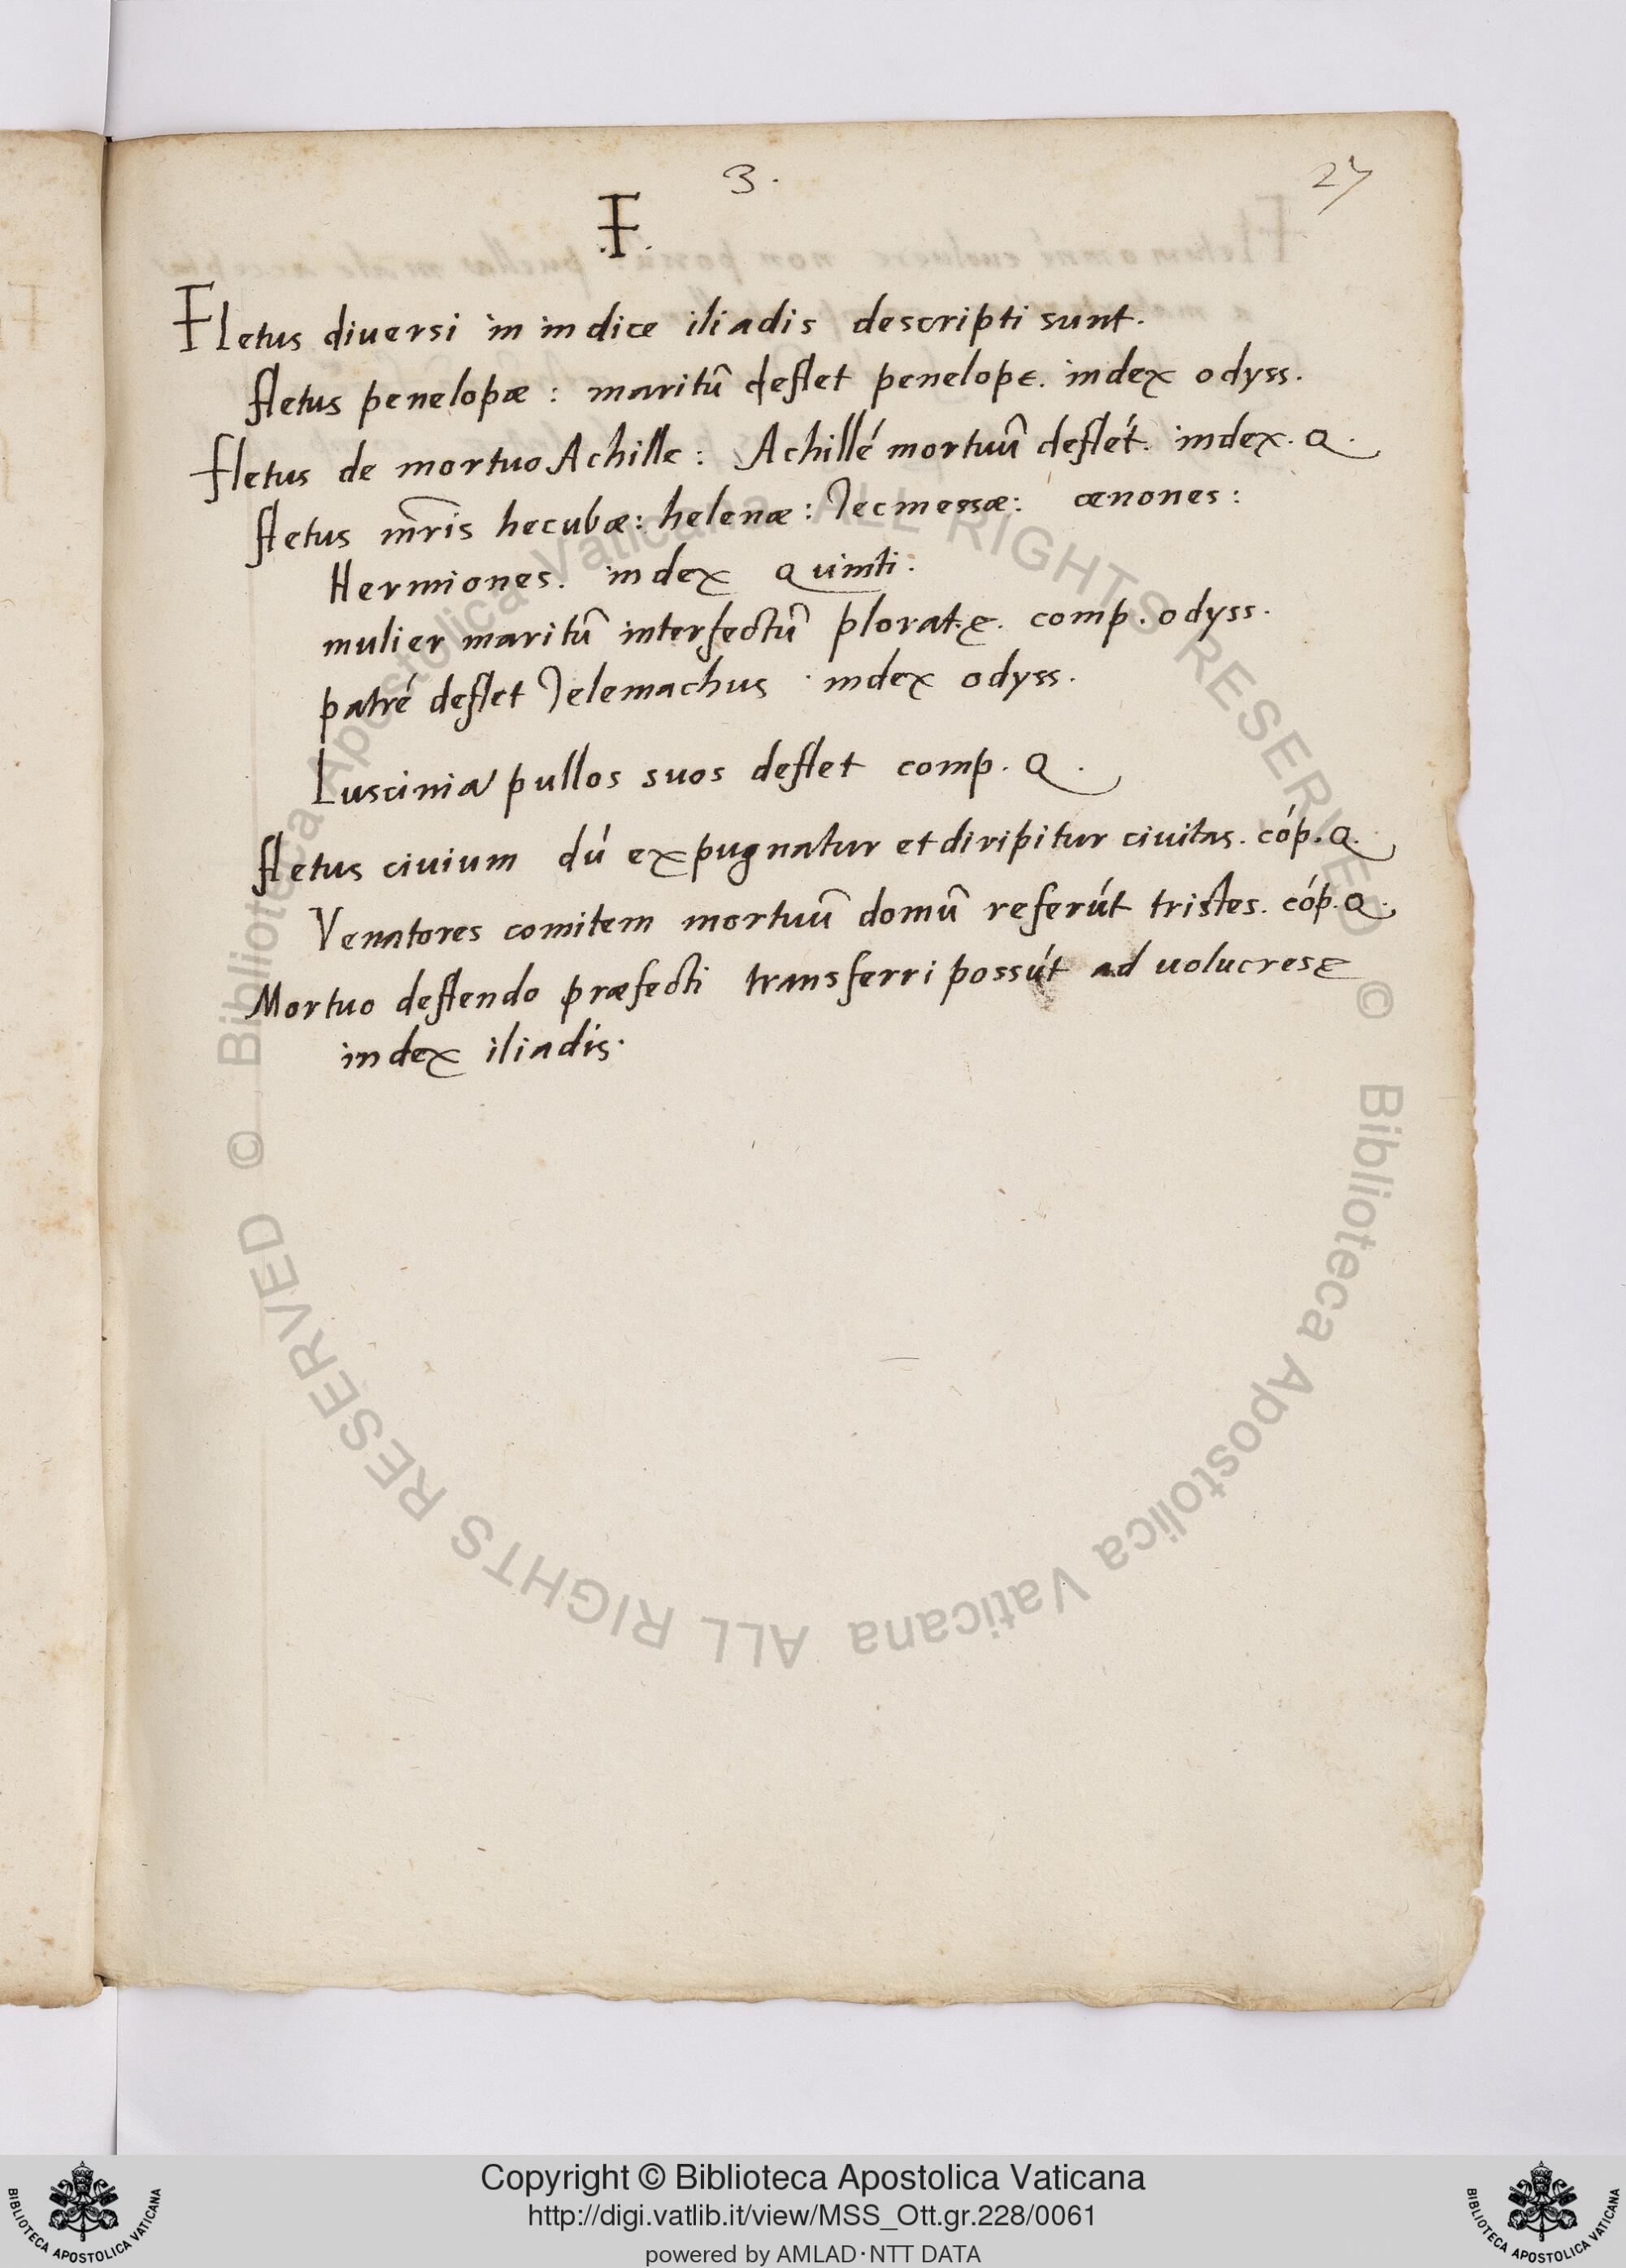 3.
27
.F.
Fletus diuersi in indice iliadis descripti sunt.
fletus penelopæ : maritū deflet penelope. index odyss.
fletus de mortuo Achille : Achillé mortuū deflét. index. Q.
fletus mr̄is hecubæ: helenæ: Tecmessæ: œnones:
Hermiones. index Quinti.
mulier maritū interfectū plorat. comp. odyss.
patré deflet Telemachus. index odyss.
Luscinia pullos suos deflet comp. Q.
fletus ciuium dú expugnatur et diripitur ciuitas. cóp. Q.
Venatores comitem mortuū domū referút tristes. cóp. Q.
Mortuo deflendo præfecti transferri possút ad uolucres
index iliadis.
© Biblioteca Apostolica Vaticana ALL RIGHTS RESERVED
© Biblioteca Apostolica Vaticana ALL RIGHTS RESERVED
BIBLIOTECA APOSTOLICA VATICANA
Copyright © Biblioteca Apostolica Vaticana
http://digi.vatlib.it/view/MSS_Ott.gr.228/0061
powered by AMLAD·NTT DATA
BIBLIOTECA APOSTOLICA VATICANA